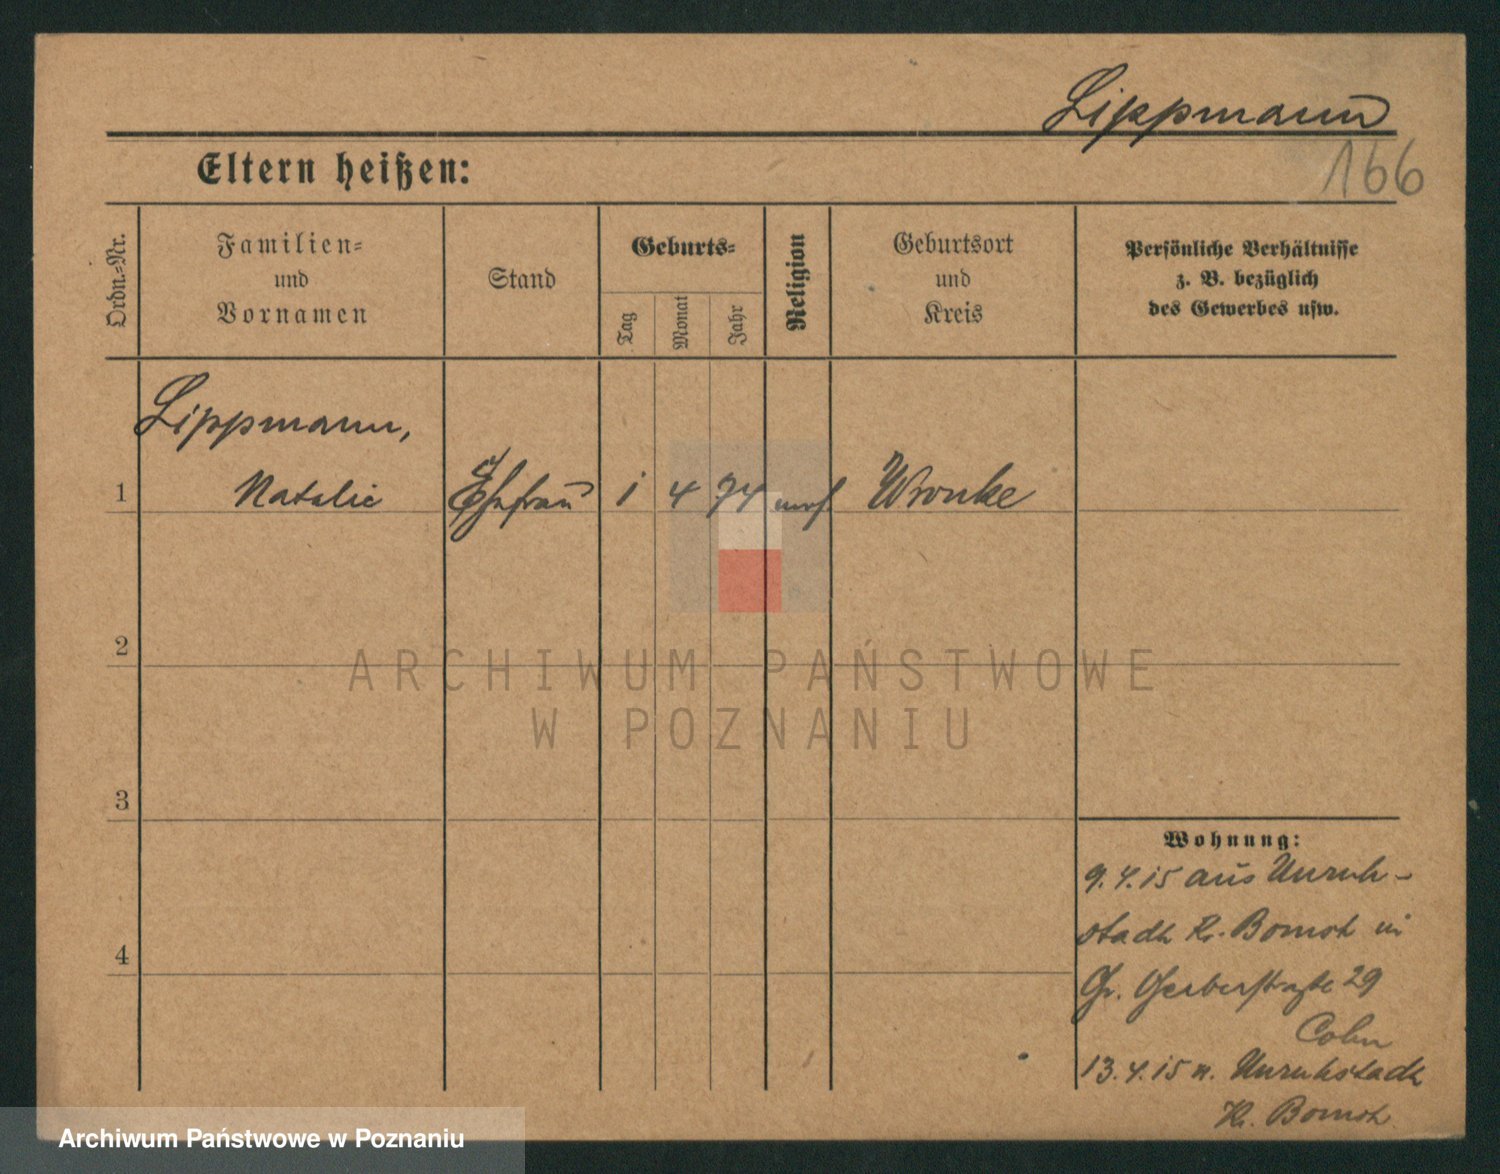 Lippmann
166
Eltern heißen:
Ordn.-Nr.
Familien-
und
Vornamen
Stand
Geburts-
Tag
Monat
Jahr
Religion
Geburtsort
und
Kreis
Persönliche Verhältnisse
z. B. bezüglich
des Gewerbes usw.
Lippmann,
1 Natalie Ehefrau 1 4 74 mos. Wronke
2
3
4
ARCHIWUM PAŃSTWOWE
W POZNANIU
Wohnung:
9.4.15 aus Unruh-
stadt Kr. Bomst in
Gr. Gerberstraße 29
Cohn
13.4.15 n. Unruhstadt
Kr. Bomst
Archiwum Państwowe w Poznaniu